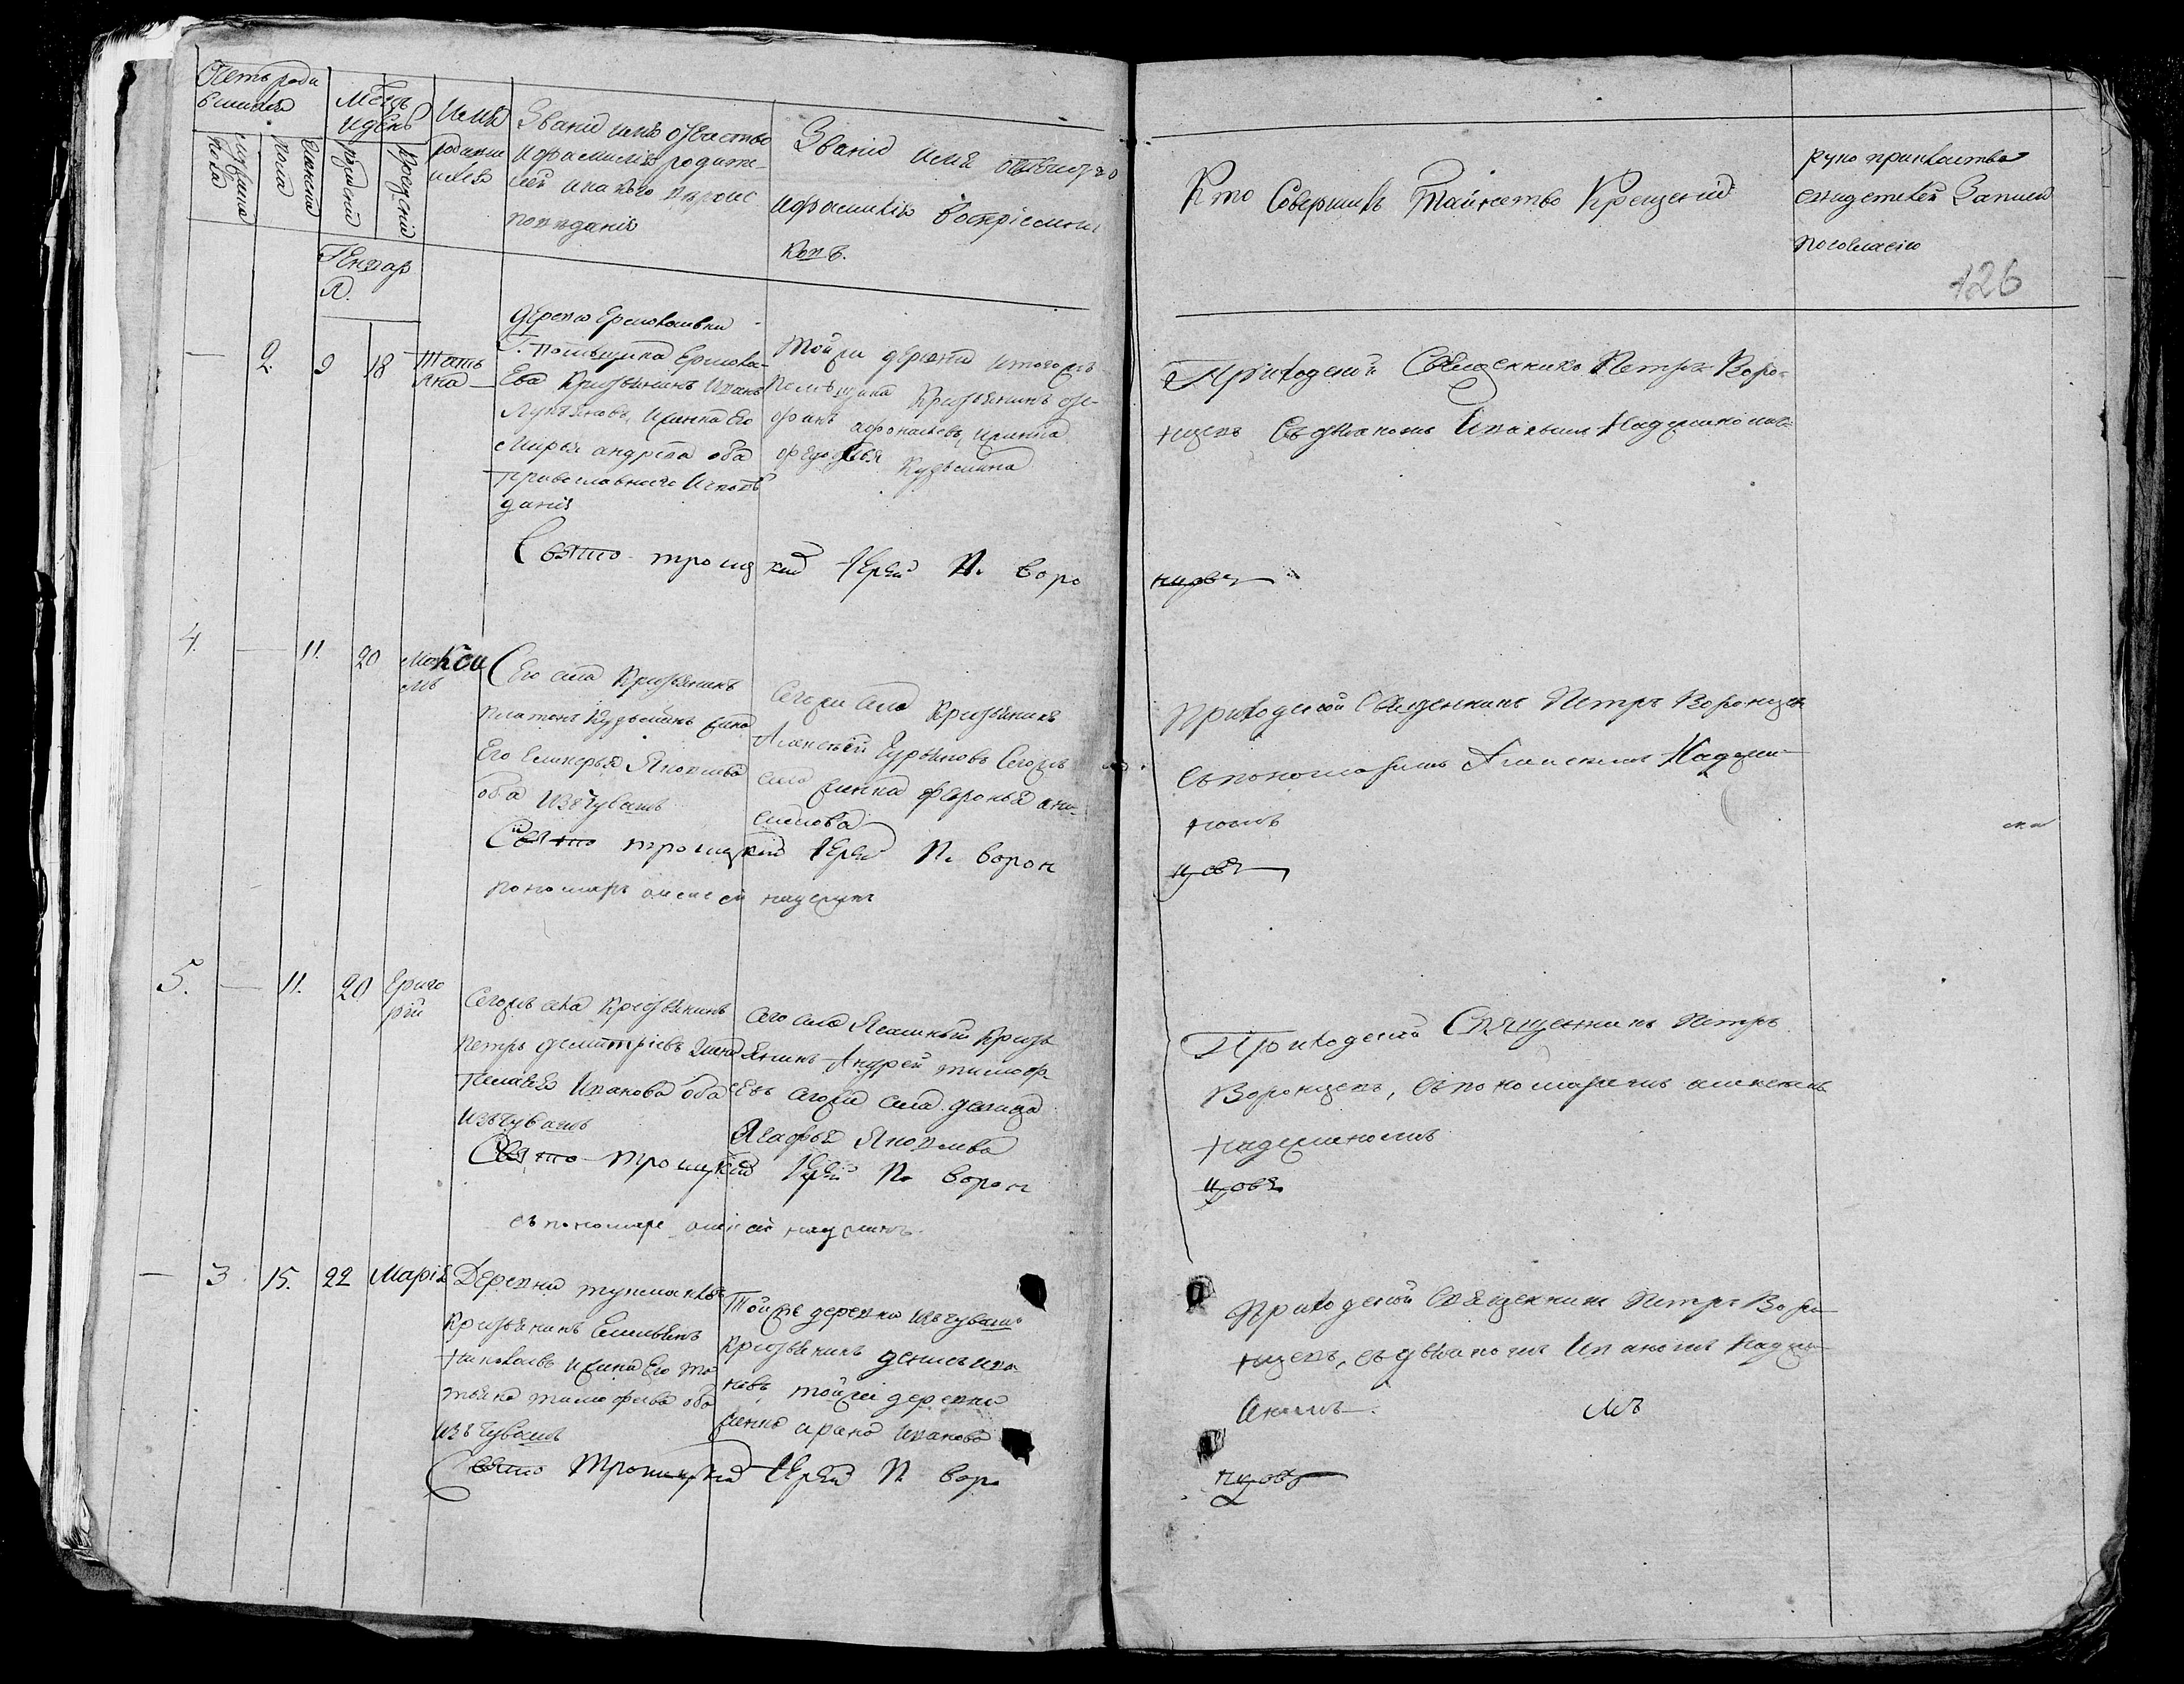 Счетъ роди
вшихся
мужеска
пола
женска
пола
Мѣсяцъ
и день
рожденія
крещенія
Имя
родивши
ихся
Званіе имя отчество
и фамилія родите-
лей и какого вѣроис
повѣданія
Званіе имя отечество
и фамилія воспріемни
ковъ.
Кто Совершилъ Таинство Крещенія
руко прикладство
свидетелей Записи
по желанію
126
Генвар
я.
— 2. 9 18 Тать
яна
деревни Ермолаевки
Г. помѣщика Ермола-
ева Крестьянинъ Иванъ
Лукьяновъ, и жена его
Марья андрѣева оба
православнаго Исповѣ
данія
Той же деревни и того жъ
Помѣщика Крестьянинъ
афонасьевъ, и жена
Кузьмина
Приходской Священникъ Петръ Воро-
нцевъ Съ діакономъ Иваномъ Надеждиномъ
Свято троицкій Іерей П. Воро
нцовъ
4. — 11. 20 Макси
мъ
Сего села Крестьянинъ
Платонъ Кузьминъ жена
Его Гликерья Яковлева
оба изъ Чувашъ
Сего же села Крестьянинъ
Алексѣй Гурьяновъ Сего жъ
села жинка Февронья ани-
симова
Приходской Священникъ Петръ Воронцев
съ пономаремъ Алексѣемъ Надежди-
номъ
Свято троицкій Іерей П. Ворон
цовъ
пономарь алексей надеждинъ
5. — 11. 20 Григо
рій
Сего жъ села Крестьянинъ
Петръ Димитріевъ жена
Пелагея Иванова оба
изъ Чувашъ
Сего села Ясашный Кресть
янинъ Андрей тимоф-
еевъ сего же села девица
Агафья Яковлева
Приходской Священникъ Петръ
Воронцевъ, съ пономаремъ алексѣемъ
надеждиномъ
Свято троицкій Іерей П. Ворон
цовъ
съ пономаре алексей надеждинъ
— 3 15. 22 Марія
Деревни
Крестьянинъ Емельянъ
Николаевъ и жена Его та-
тьяна тимофеева оба
изъ Чувашъ
Той жъ деревни изъ чувашъ
Крестьянинъ денисъ ива-
новъ той же деревни
жинка Иванова
Приходской Священникъ Петръ Воро-
нцевъ, съ дьякономъ Иваномъ Надежд-
иномъ мъ
Свято Троицкій Іерей П. Воро
нцовъ